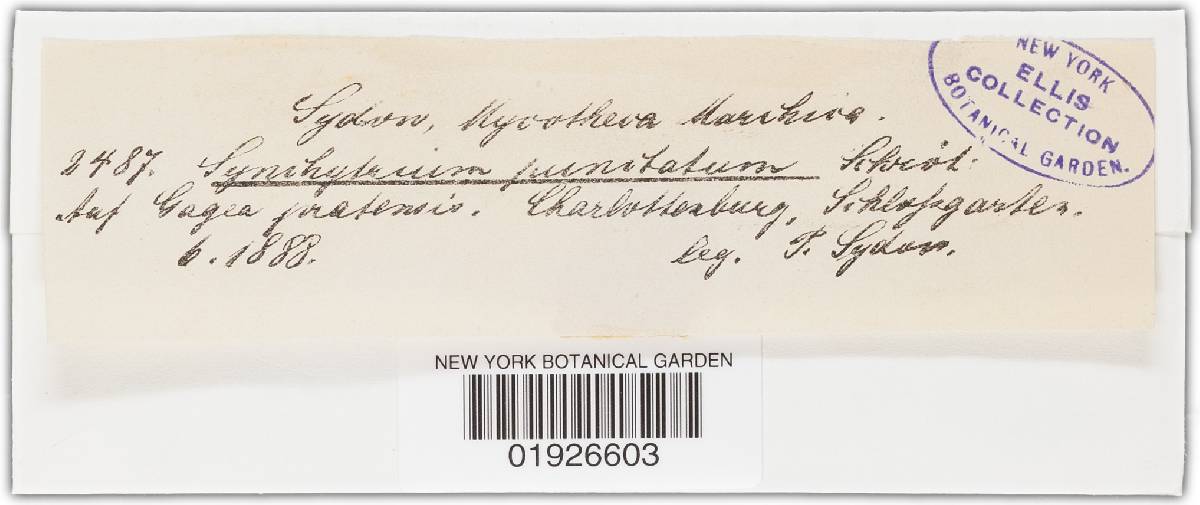 Sydow, Mycotheca Marchica.
2487. Synchytrium punctatum Schröt.
Auf Gagea pratensis. Charlottenburg, Schloßgarten.
6. 1888. leg. P. Sydow.
NEW YORK
ELLIS
COLLECTION
BOTANICAL GARDEN.
NEW YORK BOTANICAL GARDEN
01926603